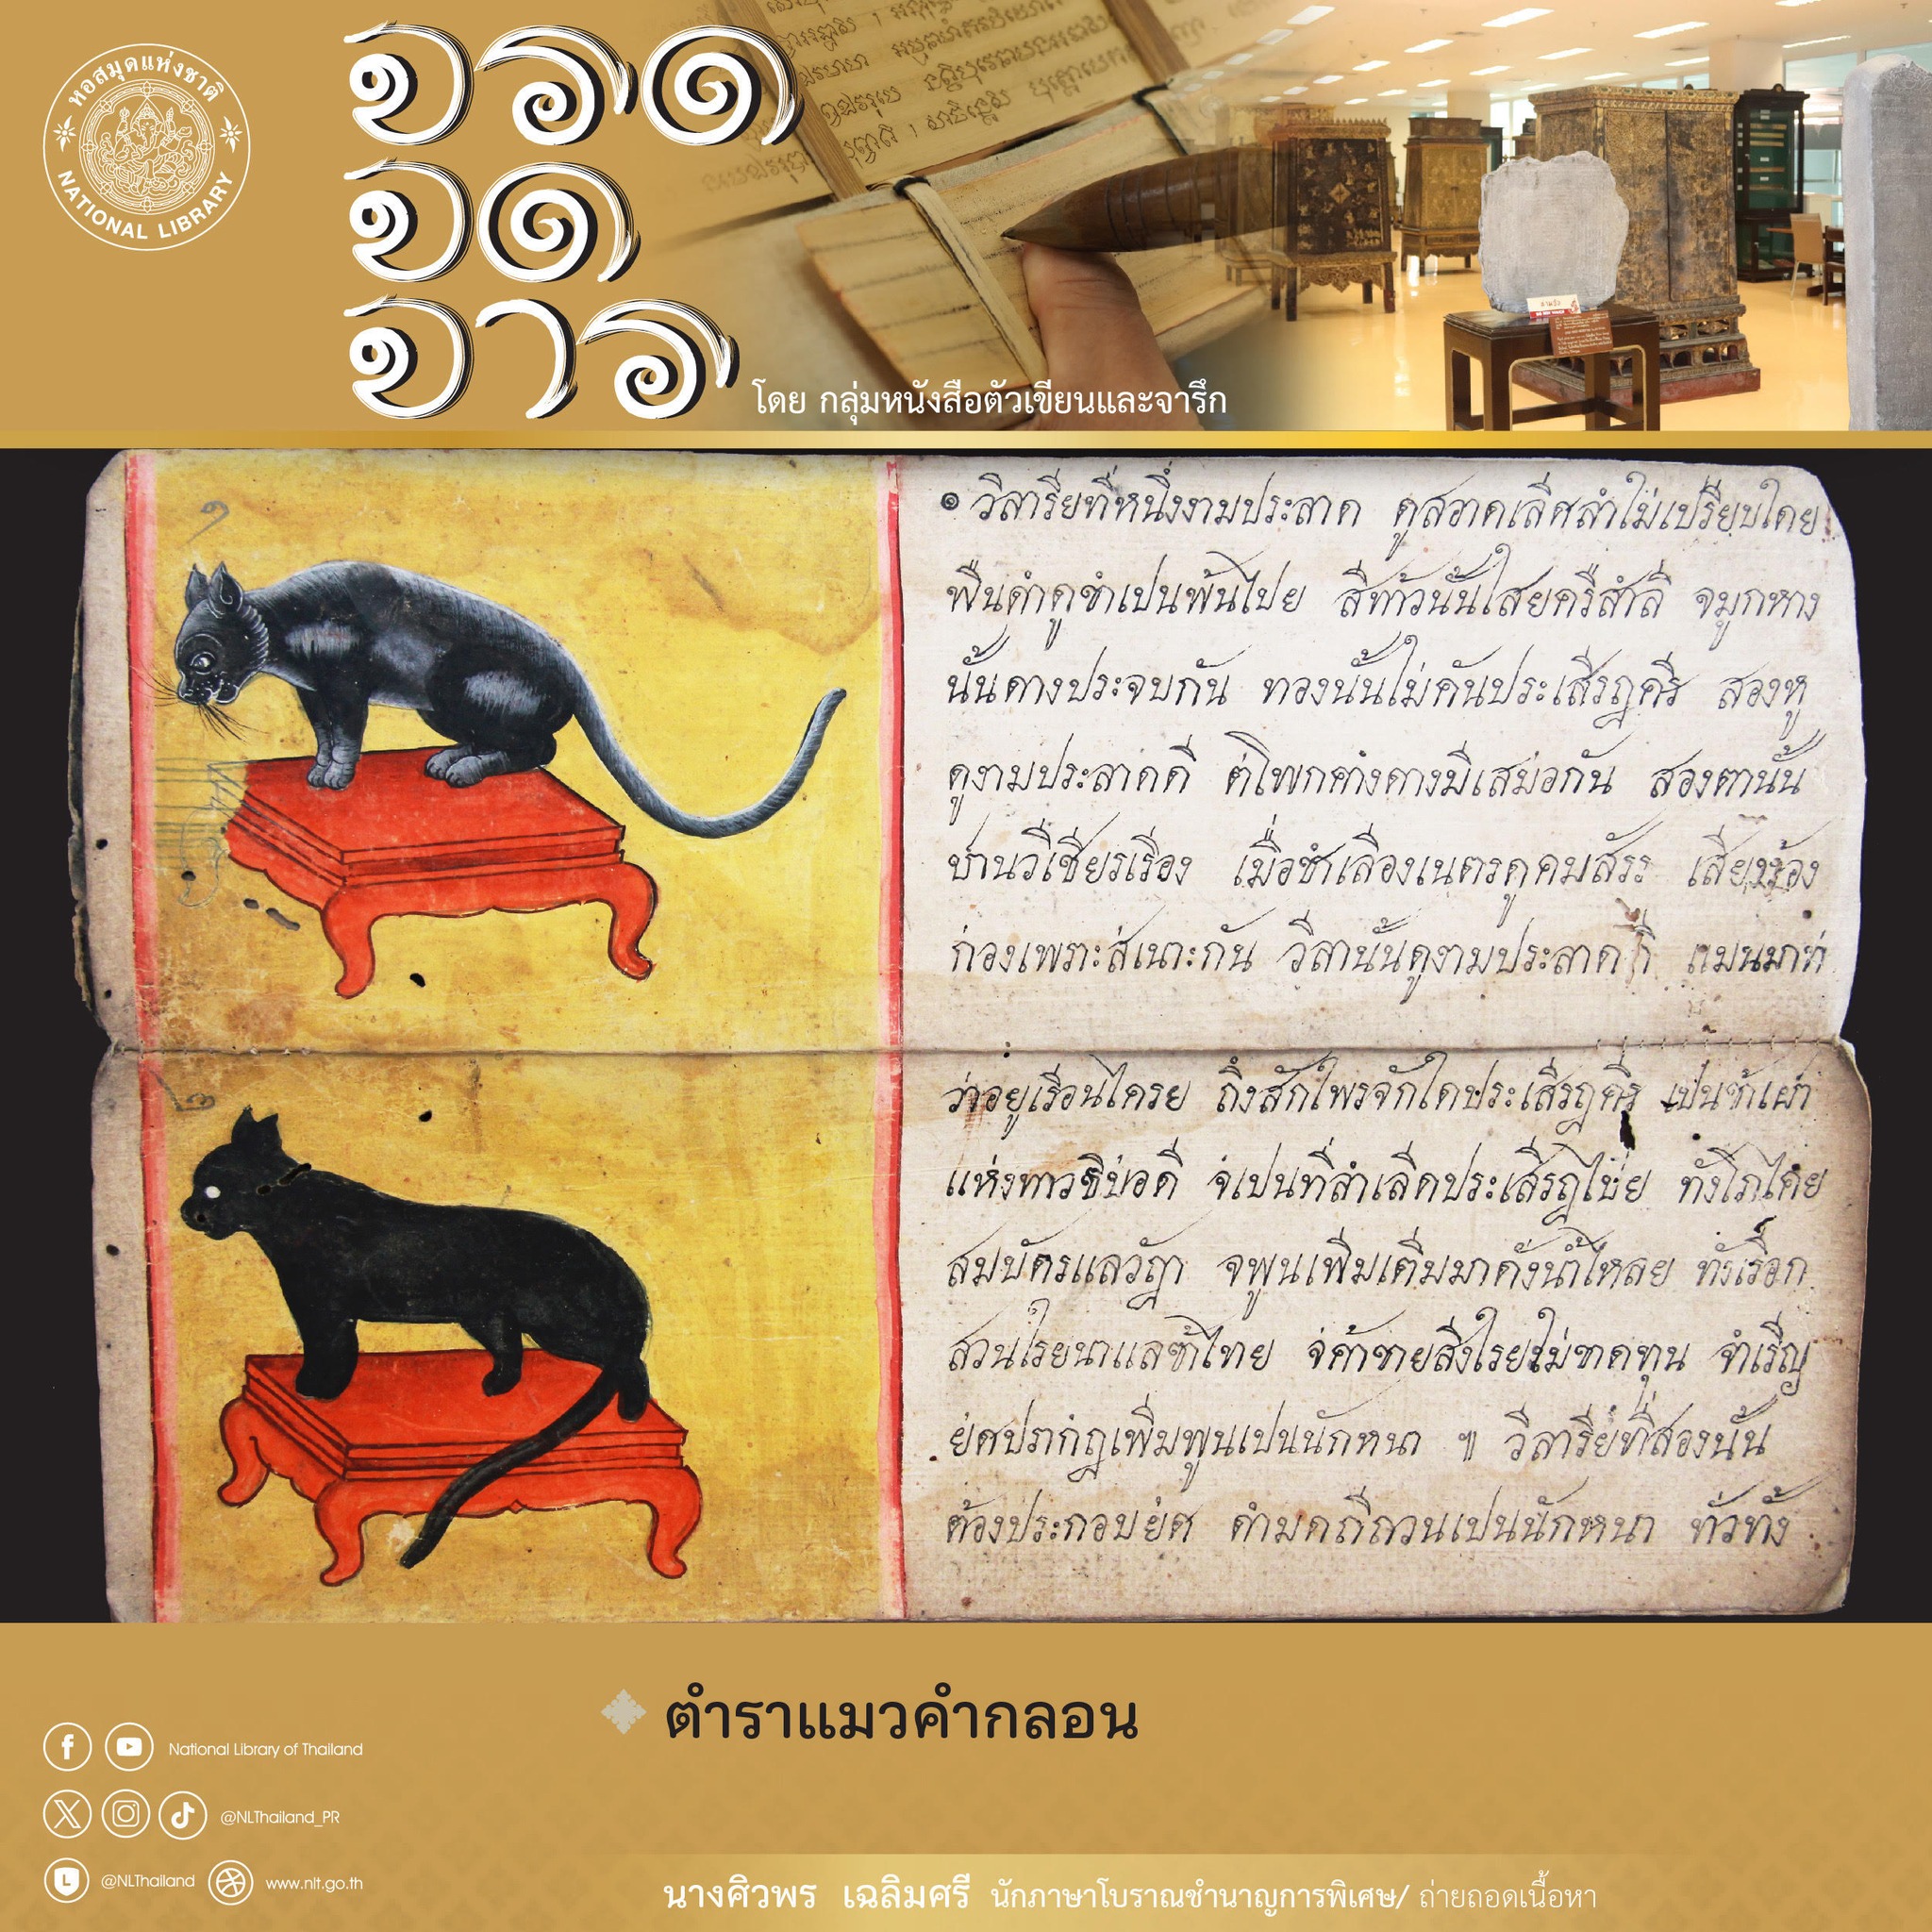 หอสมุดแห่งชาติ
NATIONAL LIBRARY
โดย กลุ่มหนังสือตัวเขียนและจารึก
๑
๏ วิลารียที่หนึ่งงามประลาด ดูสอาดเลิศลำไม่เปรียบไดย
พืนดำดูขำเปนพ้นไปย สีท้าวนั้นไสยครีสำลี จมูกหาง
นั้นคางประจบกัน ทองนั้นไม่คันประเสีรฎครี สองหู
ดูงามประลาดดี ต่โพกค่างคางมีเสมอกัน สองตานั้น
ปานวิเชียรเรือง เมื่อชำเลืองเนตรดูคมสัรร เสียงร้อง
ก่องเพราะส่เนาะกัน วิลานั้นดูงามประลาด
๒
ว่าอยู่เรือนไครย ถึงสักไพรจักไดประเสีรฎครี เป็นข้าเผ่า
แห่งทาวธิบ่อดี จ่เปนที่ลำเลิดประเสีรฎไป่ย ทั้งโภไคย
สมบัตรแลวัฎา จพูนเพีมเตีมมาดั่งน้ำไหลย ทังเรือก
สวนไรยนาแลข้าไทย จ่ค้าขายสิ่งไรยไม่ขาดทุน จำเริญ
ย่ศปรากฎเพีมพูนเปนนักหนา ฯ วิลารีย่ที่สองนั้น
ต้องประกอบย่ศ ดำมดถี่ถวนเปนนักหนา ทั่วทั้ง
ตำราแมวคำกลอน
National Library of Thailand
@NLThailand_PR
@NLThailand
www.nlt.go.th
นางศิวพร เฉลิมศรี นักภาษาโบราณชำนาญการพิเศษ/ ถ่ายถอดเนื้อหา